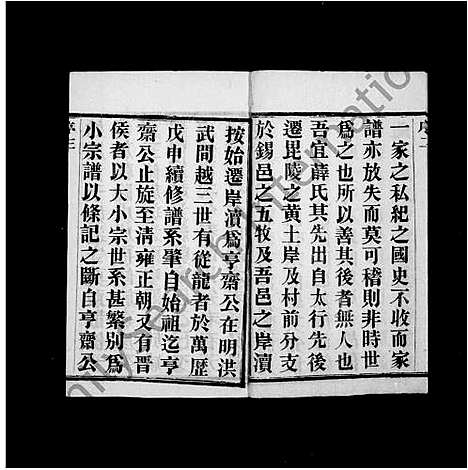 序二
一家之私紀之國史不收而家
譜亦放失而莫可稽則非時世
爲之也所以善其後者無人也
吾宜薛氏其先出自太行先後
遷毘陵之黃土岸及村前分支
於錫邑之五牧及吾邑之岸瀆
按始遷岸瀆爲亨齋公在明洪
武間越三世有從龍者於萬歷
戊申續修譜系肇自始祖迄亨
齋公止旋至清雍正朝又有晋
侯者以大小宗世系甚繁別爲
小宗譜以條記之斷自亨齋公
序三